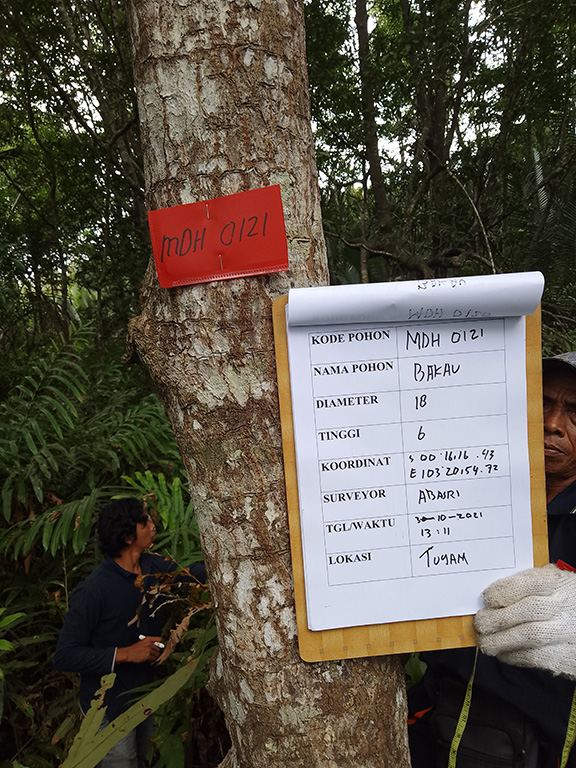 MDH 0121
KODE POHON MDH 0121
NAMA POHON BAKAU
DIAMETER 18
TINGGI 6
KOORDINAT S 00°16.16 .43
E 103°20.54.72
SURVEYOR ABASRI
TGL/WAKTU 3-10-2021
13:11
LOKASI TUYAM